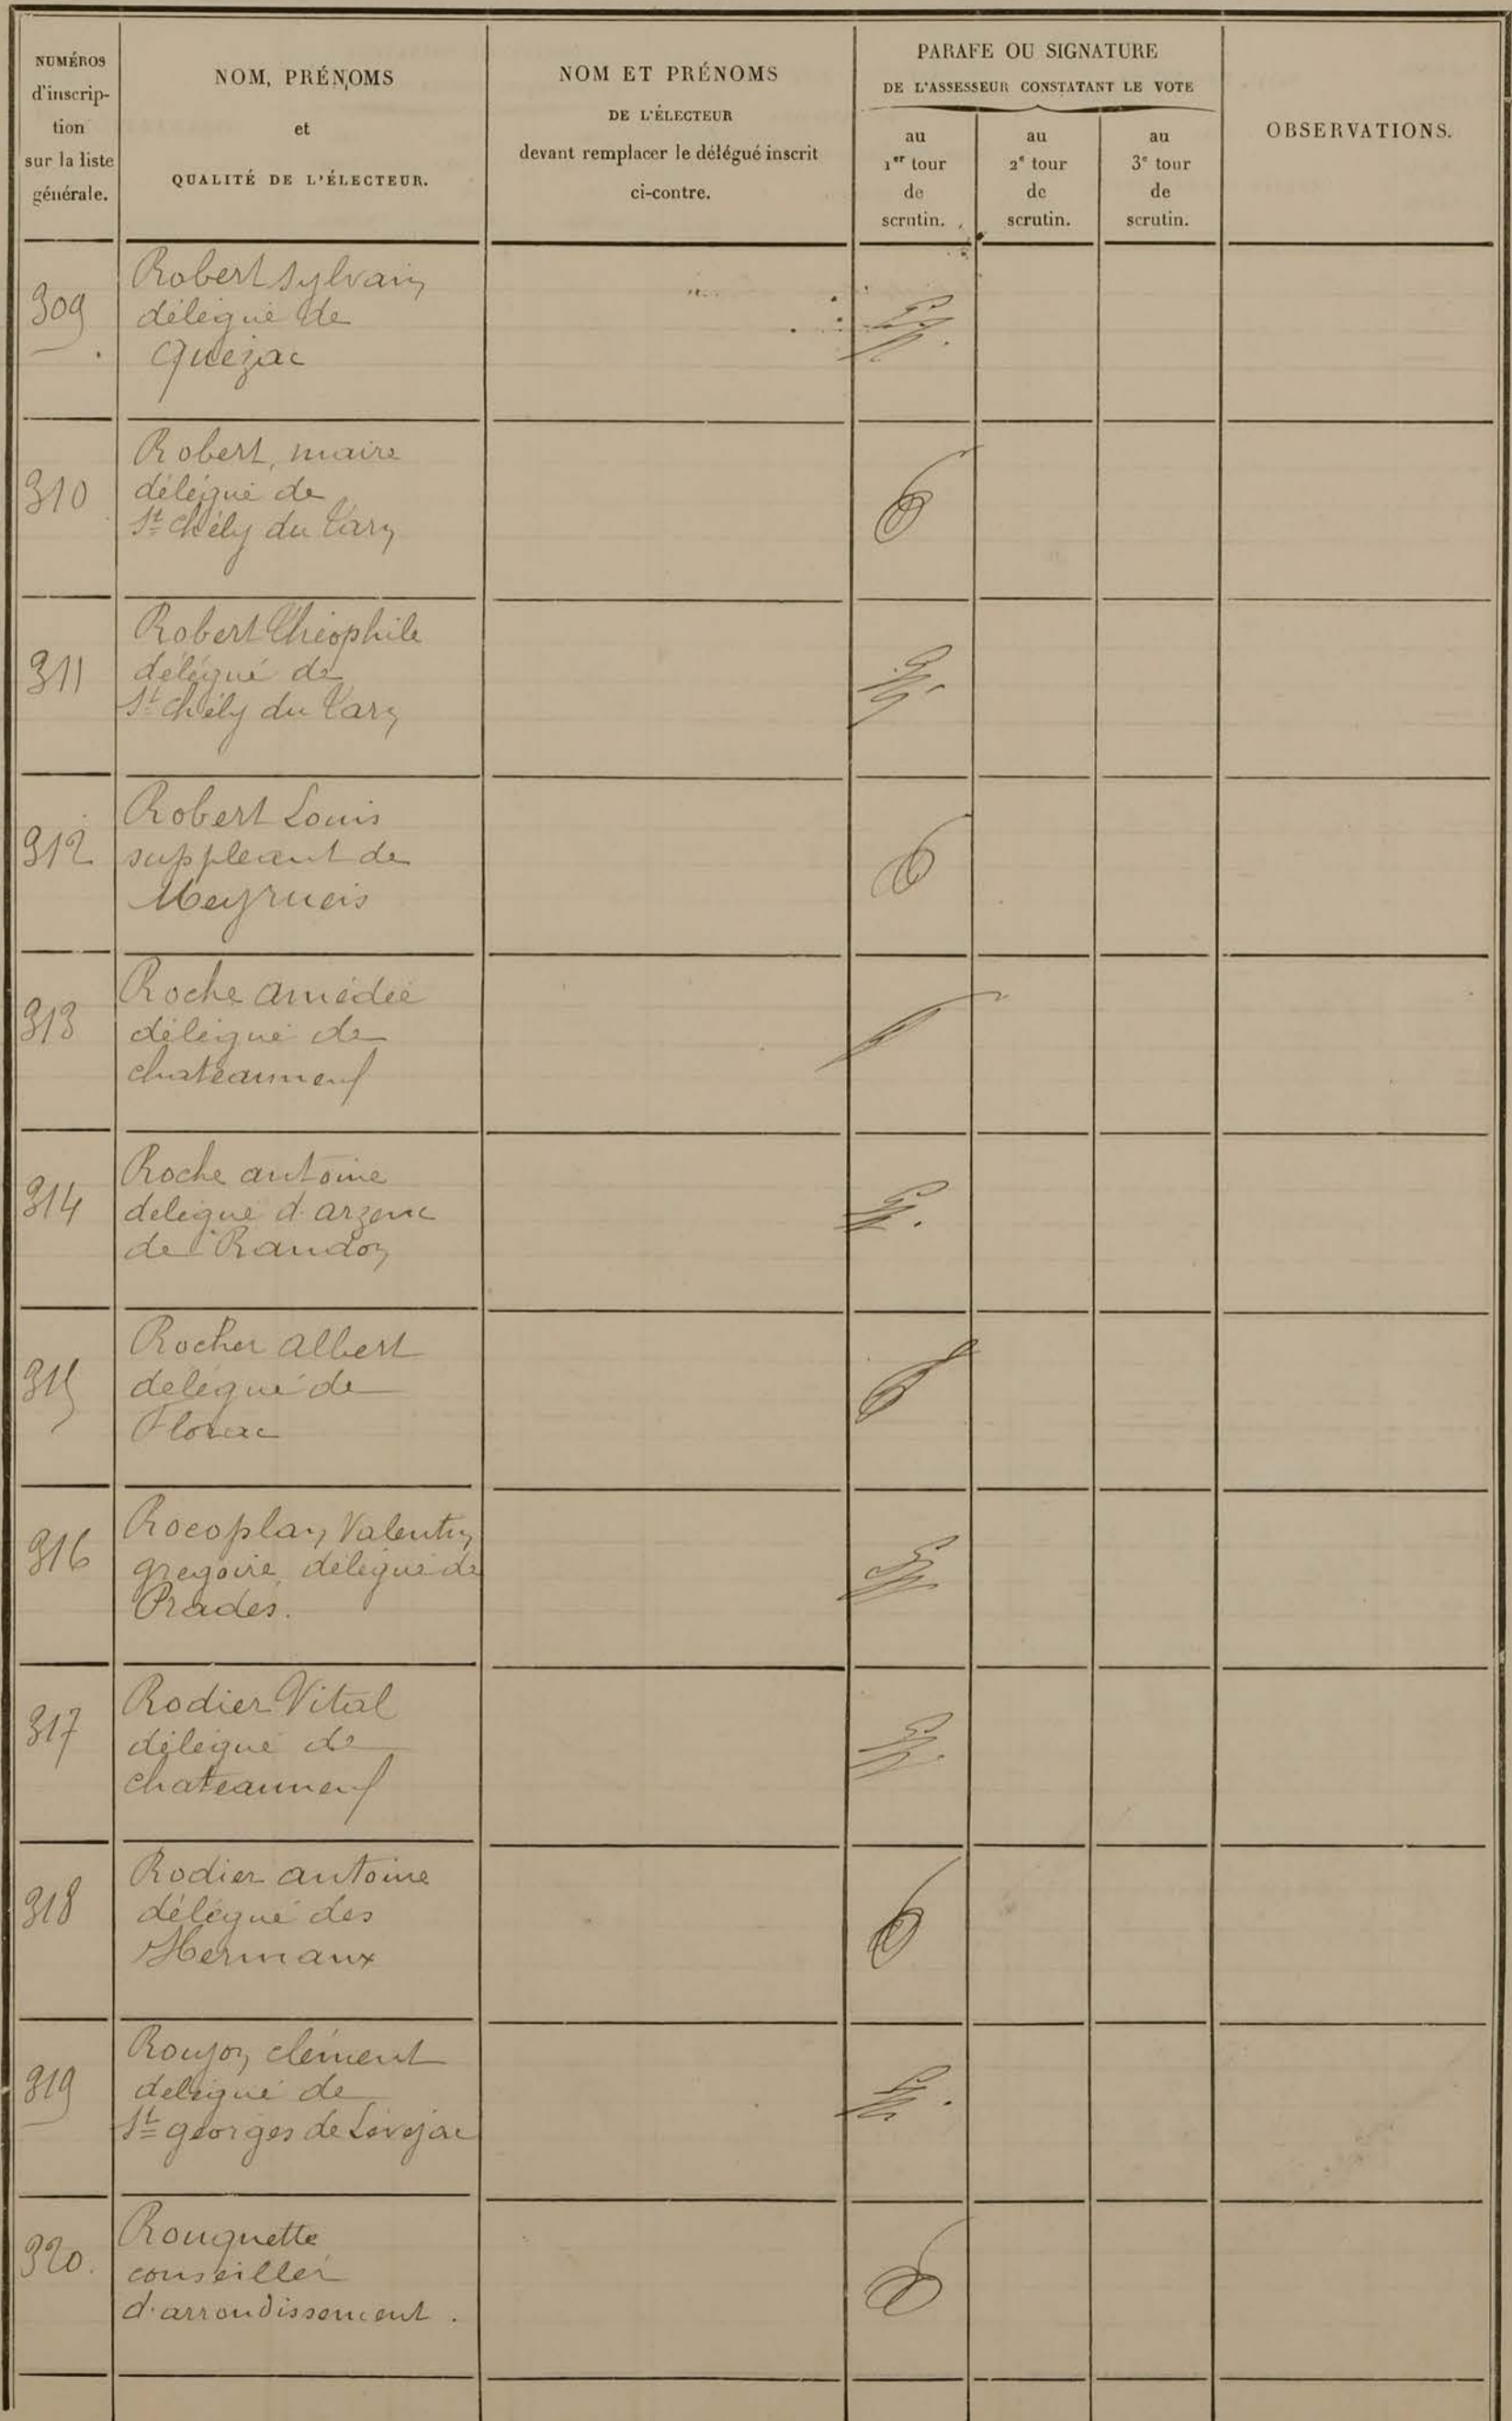 NUMÉROS
d'inscrip-
tion
sur la liste
générale.
NOM, PRÉNOMS
et
QUALITÉ DE L'ÉLECTEUR.
NOM ET PRÉNOMS
DE L'ÉLECTEUR
devant remplacer le délégué inscrit
ci-contre.
PARAFE OU SIGNATURE
DE L'ASSESSEUR CONSTATANT LE VOTE
au
1er tour
de
scrutin.
au
2e tour
de
scrutin.
au
3e tour
de
scrutin.
OBSERVATIONS.
309
Robert Sylvain
délégué de
Quézac
310
Robert, maire
délégué de
St Chély du Tarn
311
Robert Théophile
délégué de
St Chély du Tarn
312
Robert Louis
suppléant de
Meyrueis
313
Roche Amédée
délégué de
chateauneuf
314
Roche antoine
délégué d'arzenc
de Randon
315
Rocher albert
délégué de
Florac
316
Rocoplan Valentin
gregoire délégué de
Prades.
317
Rodier Vital
délégué de
chateauneuf
318
Rodier antoine
délégué des
Hermaux
319
Roujon clément
délégué de
St georges de Lévejac
320.
Rouquette
conseiller
d'arrondissement.